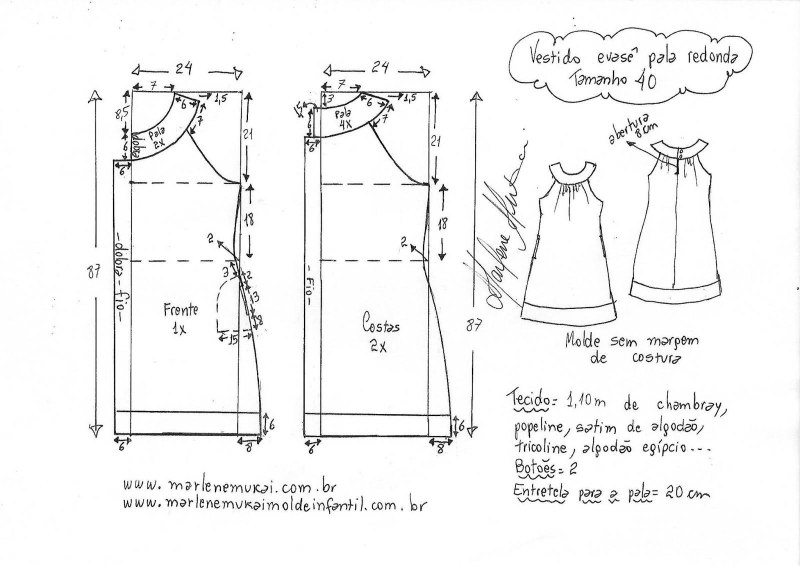 Vestido evasê pala redonda
Tamanho 40
24
7
1,5
8,5
6
6
7
Pala
2x
dobra
6
21
18
2
3
2
3
8
15
87
- dobra - fio -
Frente
1x
6
8
6
24
7
3
1,5
1,5
6
6
7
Pala
4x
6
21
18
2
- Fio -
Costas
2x
87
6
8
6
abertura
8cm
Marlene Mukai
Molde sem margem
de costura
Tecido= 1,10m de chambray,
popeline, satim de algodão,
tricoline, algodão egípcio...
Botões= 2
Entretela para a pala= 20cm
www.marlenemukai.com.br
www.marlenemukaimoldeinfantil.com.br